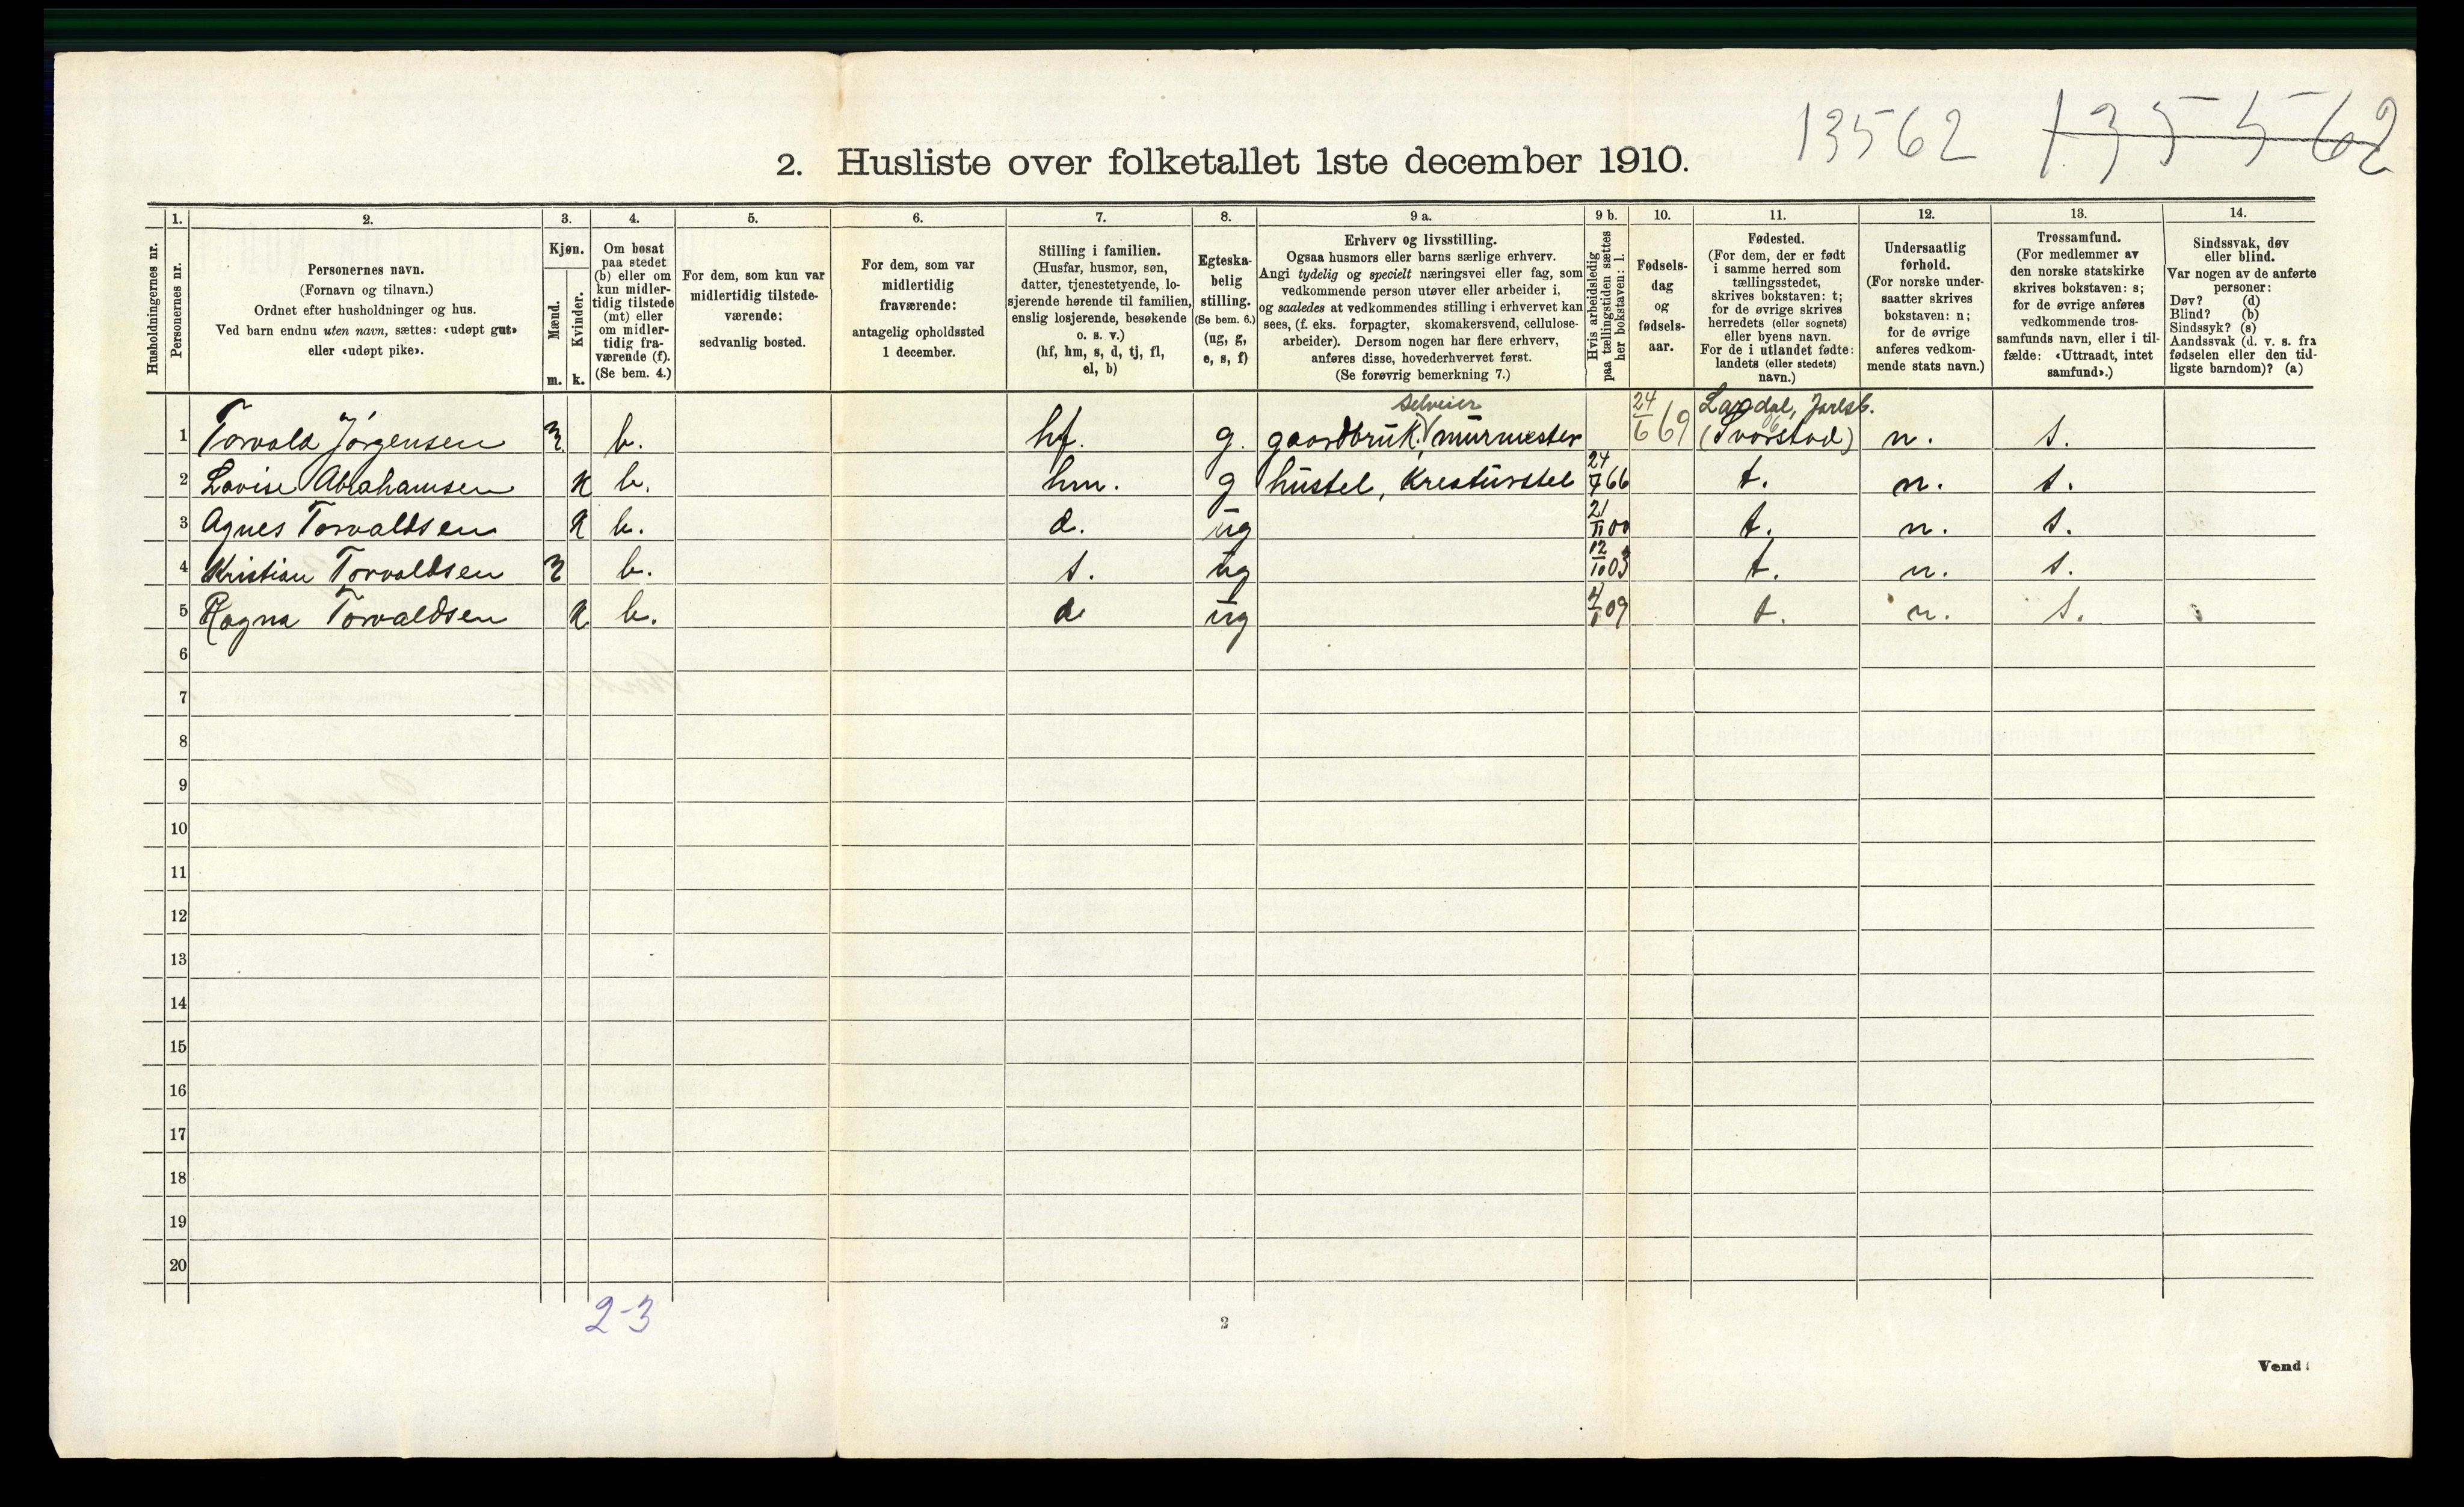 13562 135562
2. Husliste over folketallet 1ste december 1910.
1. 2. 3. 4. 5. 6. 7. 8. 9 a. 9 b. 10. 11. 12. 13. 14.
Husholdningernes nr.
Personernes nr.
Personernes navn.
(Fornavn og tilnavn.)
Ordnet efter husholdninger og hus.
Ved barn endnu uten navn, sættes: «udøpt gut»
eller «udøpt pike».
Kjøn.
Mænd.
Kvinder.
m. k.
Om bosat
paa stedet
(b) eller om
kun midler-
tidig tilstede
(mt) eller
om midler-
tidig fra-
værende (f).
(Se bem. 4.)
For dem, som kun var
midlertidig tilstede-
værende:
sedvanlig bosted.
For dem, som var
midlertidig
fraværende:
antagelig opholdssted
1 december.
Stilling i familien.
(Husfar, husmor, søn,
datter, tjenestetyende, lo-
sjerende hørende til familien,
enslig losjerende, besøkende
o. s. v.)
(hf, hm, s, d, tj, fl,
el, b)
Egteska-
belig
stilling.
(Se bem. 6.)
(ug, g,
e, s, f)
Erhverv og livsstilling.
Ogsaa husmors eller barns særlige erhverv.
Angi tydelig og specielt næringsvei eller fag, som
vedkommende person utøver eller arbeider i,
og saaledes at vedkommendes stilling i erhvervet kan
sees, (f. eks. forpagter, skomakersvend, cellulose-
arbeider). Dersom nogen har flere erhverv,
anføres disse, hovederhvervet først.
(Se forøvrig bemerkning 7.)
Hvis arbeidsledig
paa tællingstiden sættes
her bokstaven: l.
Fødsels-
dag
og
fødsels-
aar.
Fødested.
(For dem, der er født
i samme herred som
tællingsstedet,
skrives bokstaven: t;
for de øvrige skrives
herredets (eller sognets)
eller byens navn.
For de i utlandet fødte:
landets (eller stedets)
navn.)
Undersaatlig
forhold.
(For norske under-
saatter skrives
bokstaven: n;
for de øvrige
anføres vedkom-
mende stats navn.)
Trossamfund.
(For medlemmer av
den norske statskirke
skrives bokstaven: s;
for de øvrige anføres
vedkommende tros-
samfunds navn, eller i til-
fælde: «Uttraadt, intet
samfund».)
Sindssvak, døv
eller blind.
Var nogen av de anførte
personer:
Døv? (d)
Blind? (b)
Sindssyk? (s)
Aandssvak (d. v. s. fra
fødselen eller den tid-
ligste barndom)? (a)
selveier Lardal, Jarlsb.
1 Torvald Jørgensen m b. hf. g. gaardbruk, murmester 24/6 69 (Svarstad) n. s.
2 Lovise Abrahamsen k b. hm. g hustel, Kreaturstel 24/7 66 t. n. s.
3 Agnes Torvaldsen k b. d. ug 21/11 00 t. n. s.
4 Kristian Torvaldsen m b. s. ug 12/10 03 t. n. s.
5 Ragna Torvaldsen k b. d ug 09 t. n. s.
6
7
8
9
10
11
12
13
14
15
16
17
18
19
20
2-3
2
Vend!